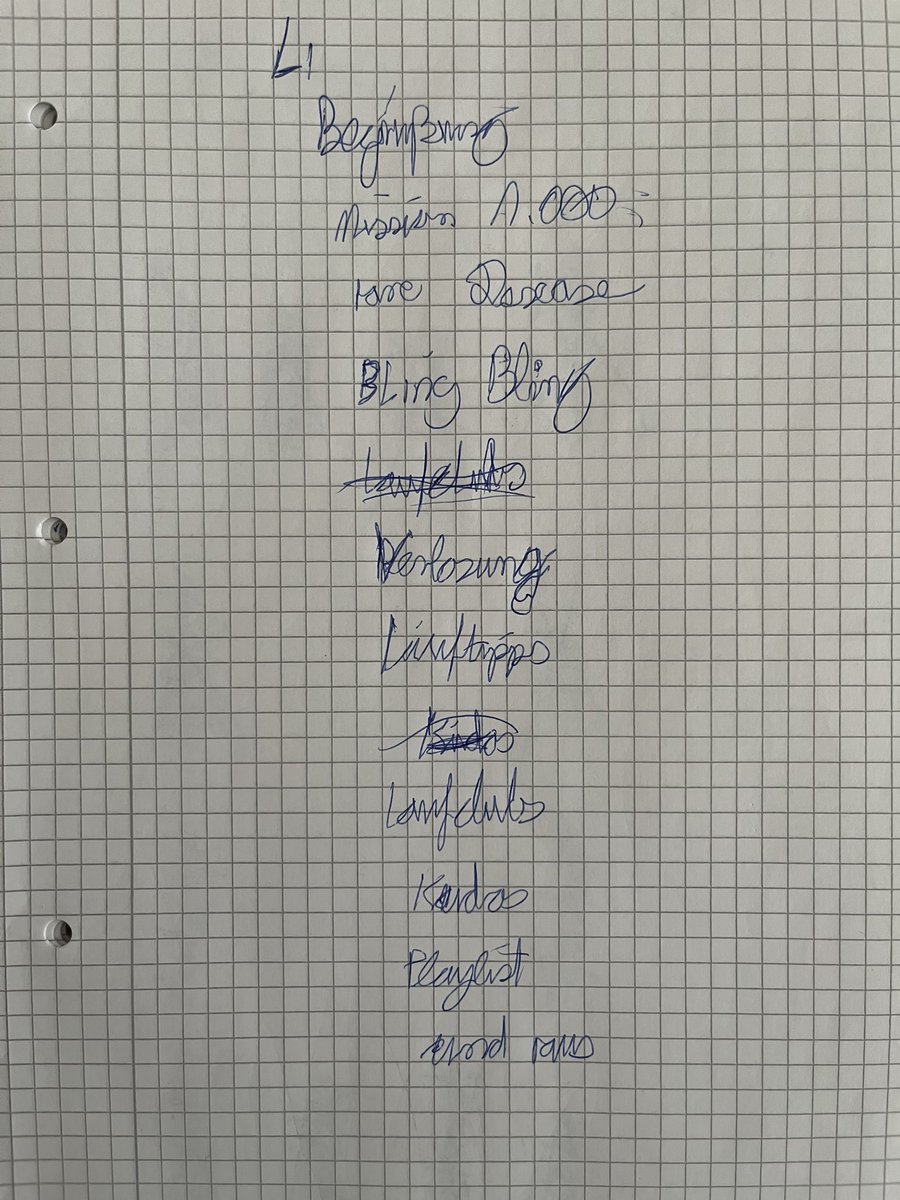 Begrüßung
Mission 1.000
rare Desease
Bling Bling
Laufclubs
Verlosung
Lauftipps
Laufclubs
Kudos
Playlist
und raus